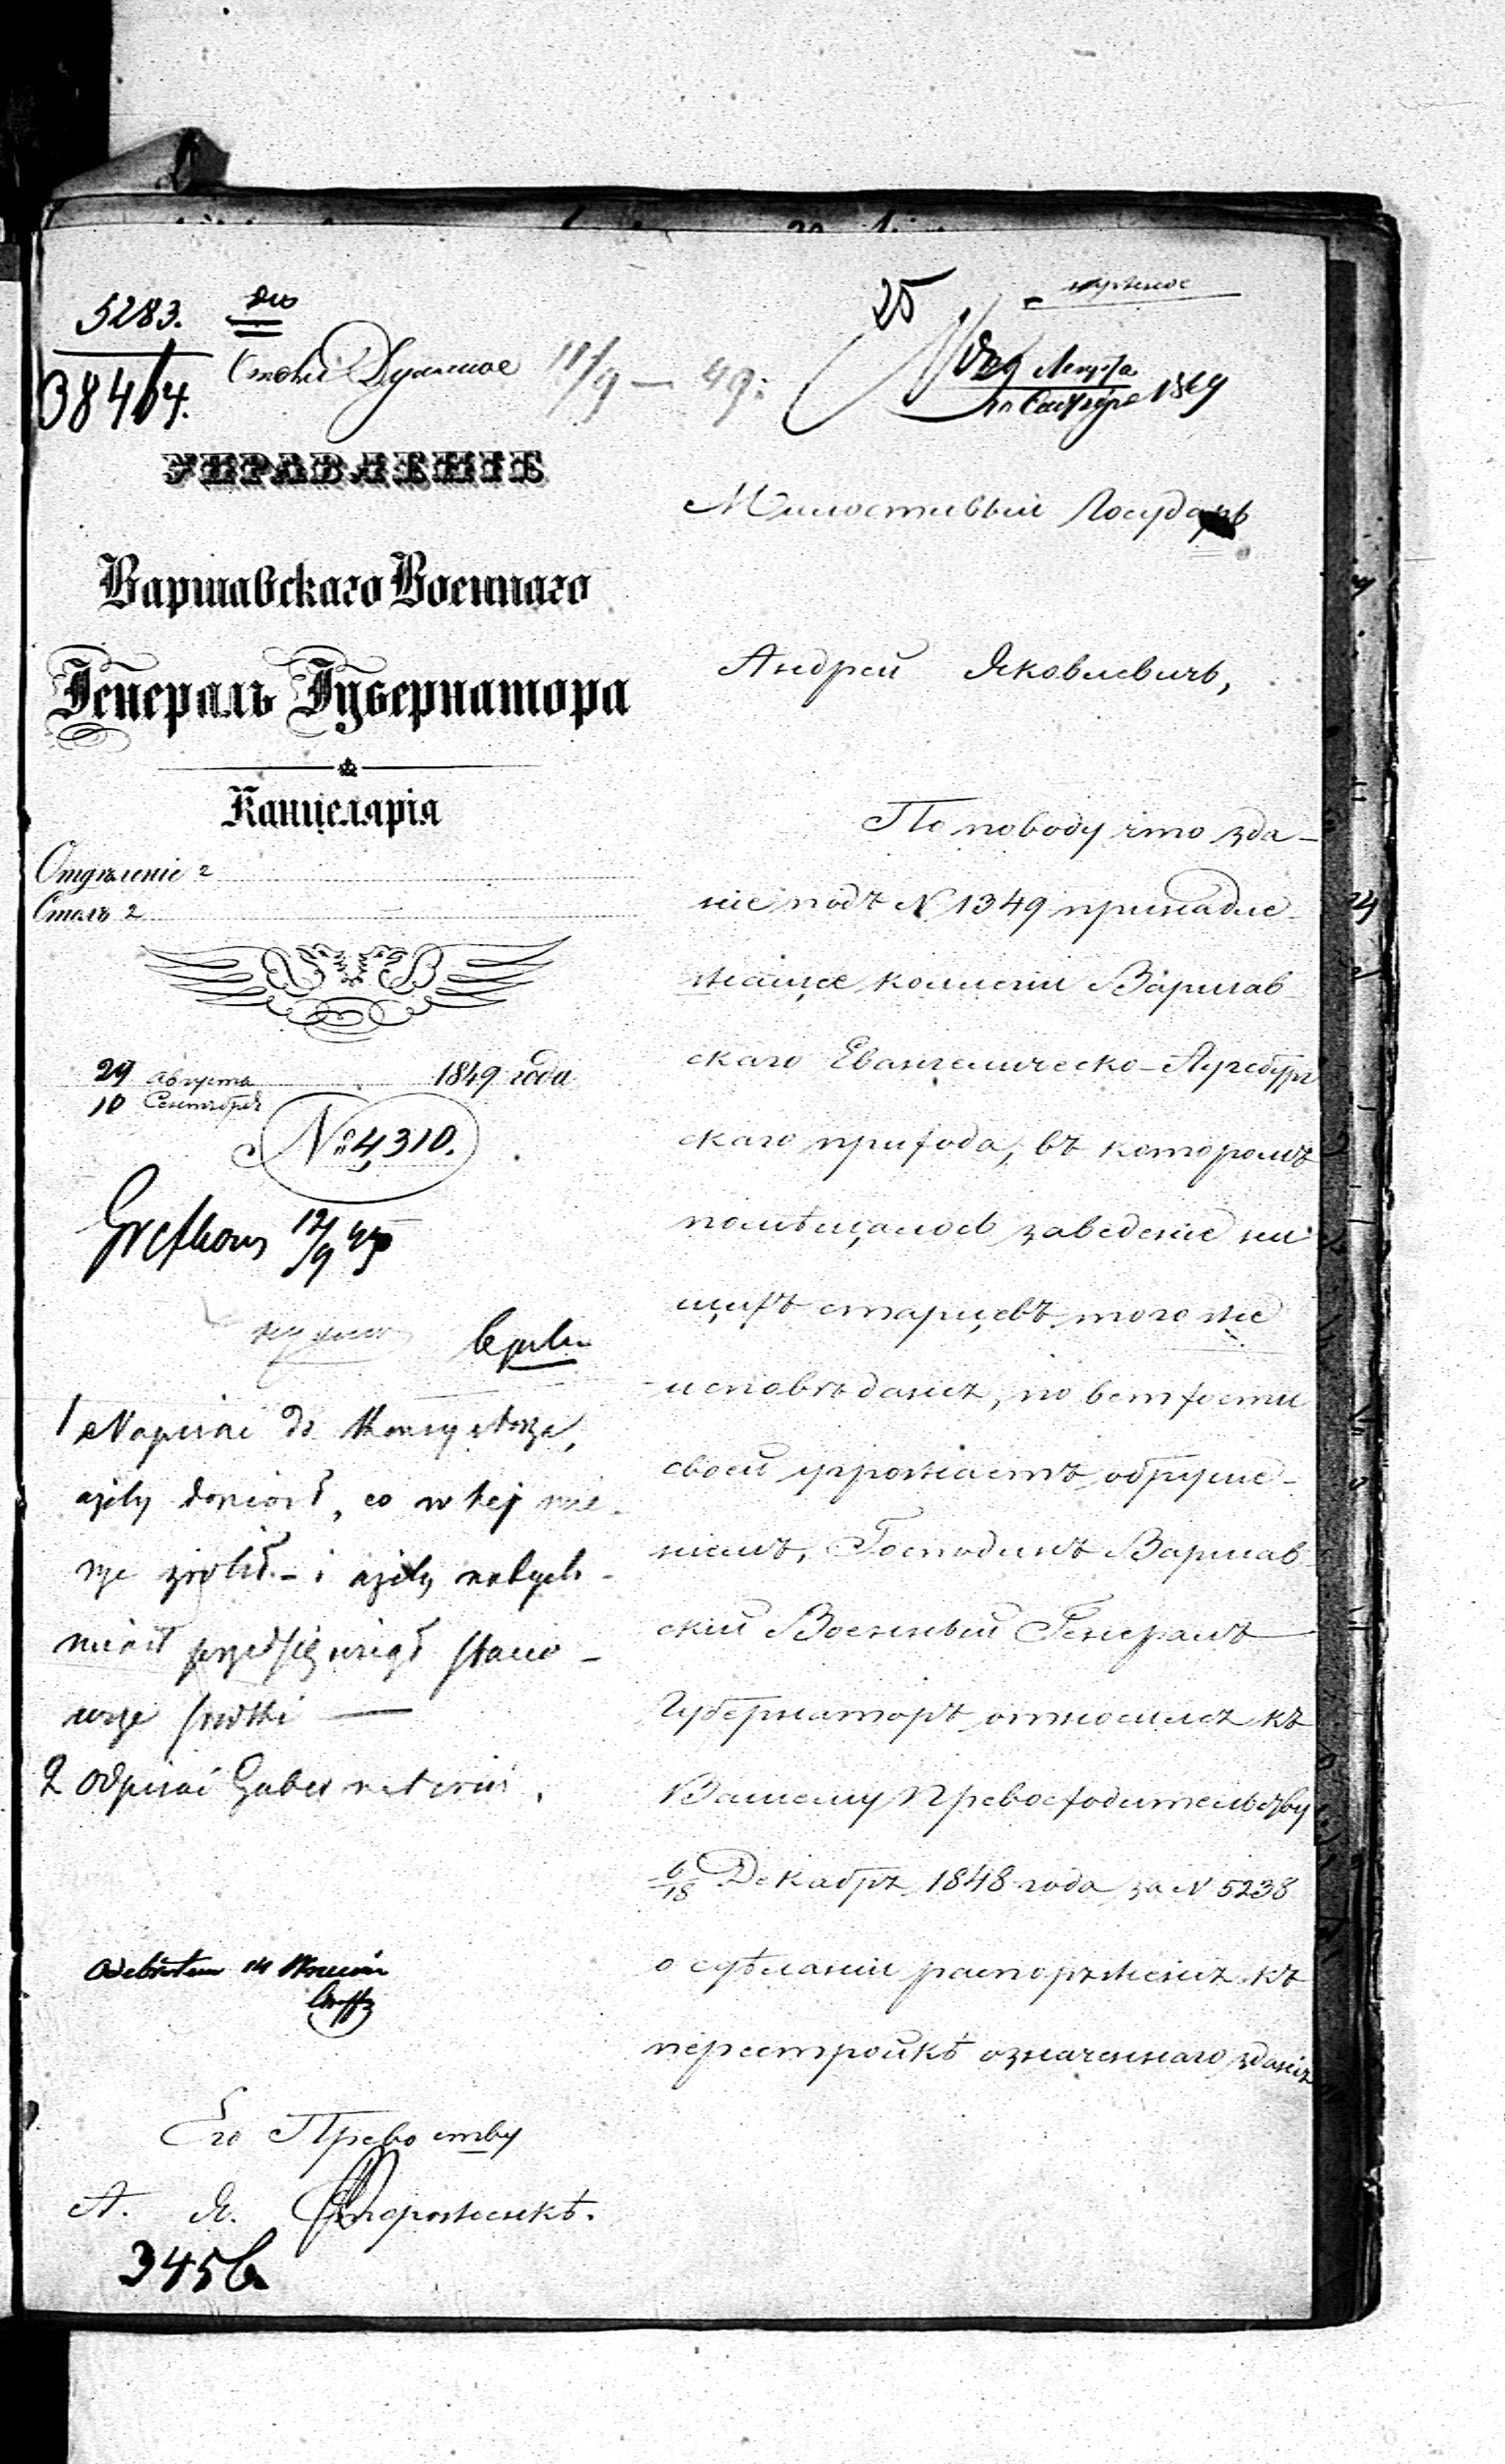 5283.
38464.
11/9 — 49.
25
нужное
29 Августа
10 Сентября 1849
УПРАВЛЕНІЕ
Варшавскаго Военнаго
Генералъ Губернатора
Канцелярія
Отдѣленіе 2
Столъ 2
29 Августа 1849 года
10 Сентября
№ 4,310.
12/9
1 Napisać do Konsystorza,
ażeby doniósł, co w tej mie-
rze zrobił – i ażeby natych-
miast przedsięwziął stano-
wcze środki —
2 odpisać Gubernatorowi.
Его Прево ству
А. Я. Стороженкѣ.
345
Милостивый Государь
Андрей Яковлевичъ,
По поводу что зда-
ніе подъ N 1349 принадле-
жащее коллегіи Варшав-
скаго Евангелическо-Аугсбург
скаго прихода, въ которомъ
помѣщалось заведеніе ни
щихъ старцевъ того же
исповѣданія, по ветхости
своей угрожаетъ обруше-
ніемъ, Господинъ Варшав
скій Военный Генералъ
Губернаторъ относился къ
Вашему Превосходительству
6/18 Декабря 1848 года за N 5238
о сдѣланіи распоряженія къ
перестройкѣ означеннаго зданія